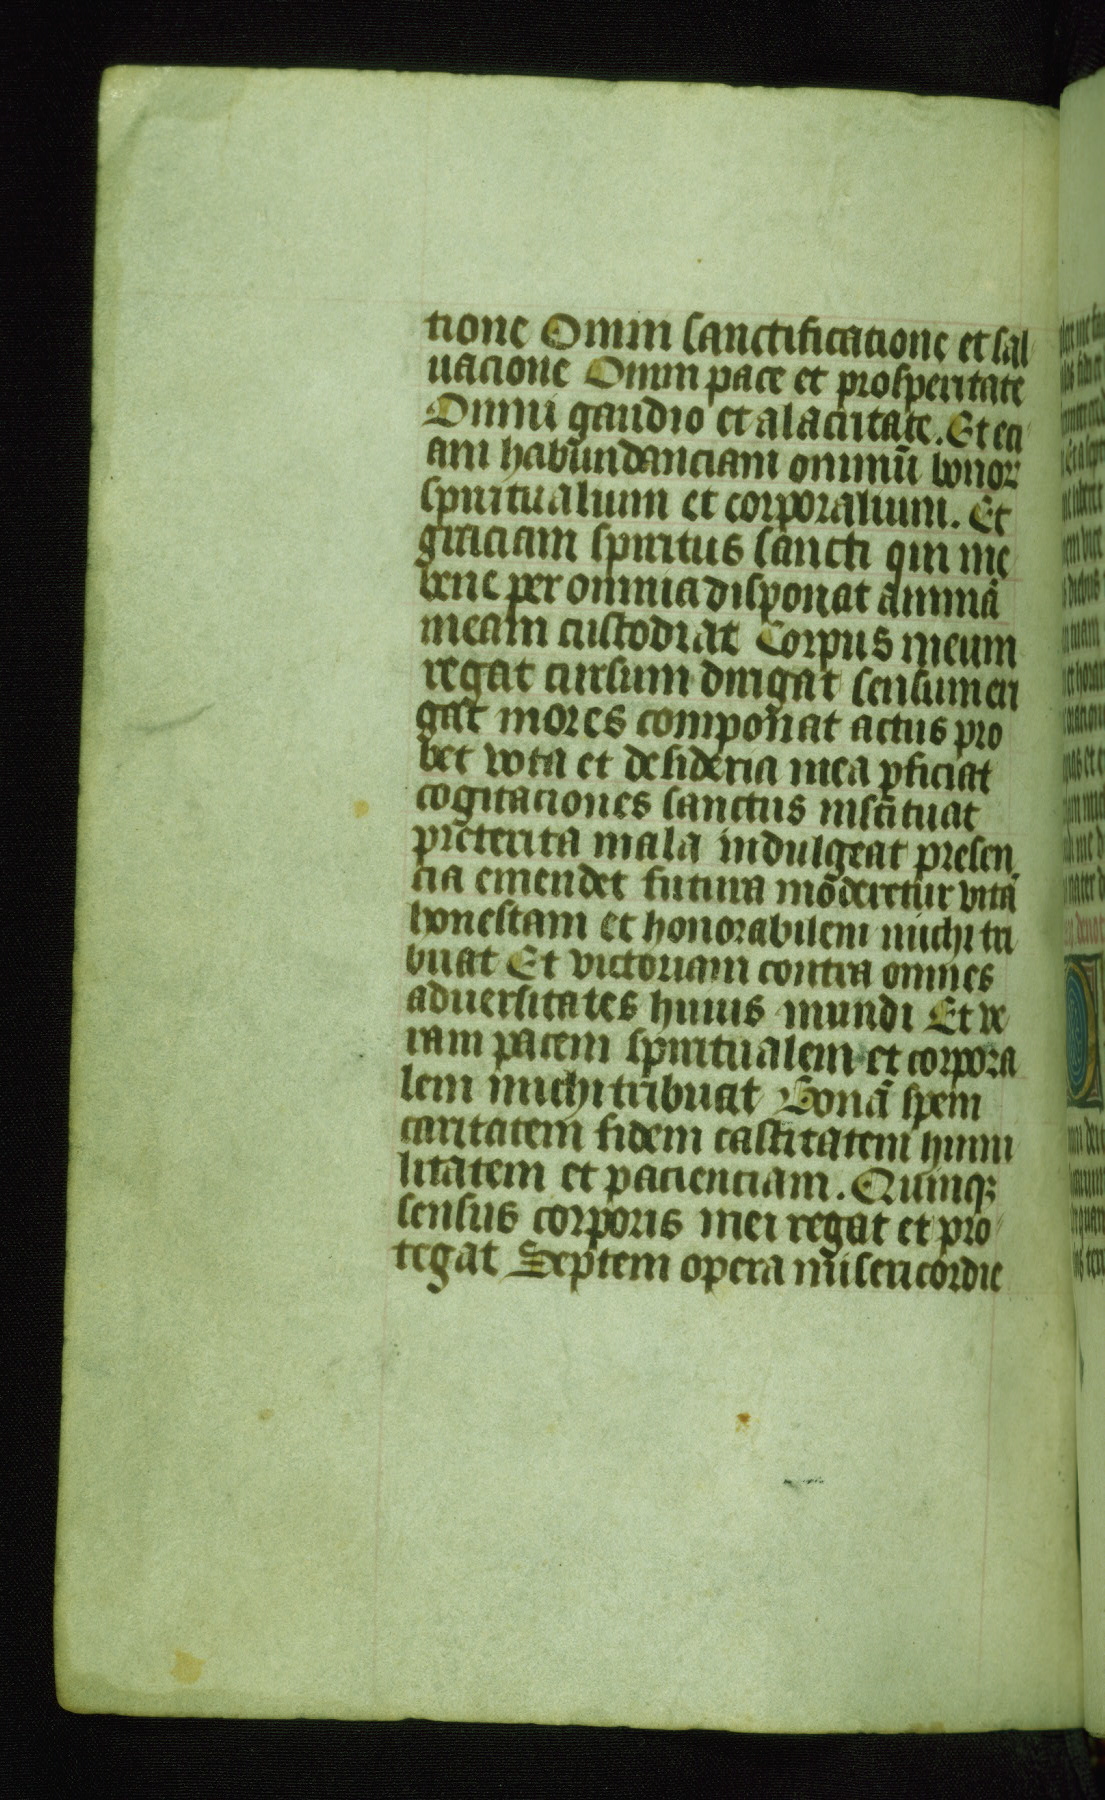 tione Omni sanctificatione et sal
uacione Omni pace et prosperitate
Omni gaudio et alacritate. Et eci
am habundanciam omniū bonor
spiritualium et corporalium. Et
graciam spiritus sancti qui me
bene per omnia disponat animā
meam custodiat Corpus meum
regat cursum dirigat sensum eri
gat mores componat actus pro
bet vota et desideria mea ꝑficiat
cogitaciones sanctus instituat
preterita mala indulgeat presen
cia emendet futura mōderetur vitā
honestam et honorabilem michi tri
buat Et victoriam contra omnes
aduersitates huius mundi Et ve
ram pacem spiritualem et corpora
lem michi tribuat Bonā spem
caritatem fidem castitatem humi
litatem et pacienciam. Quinqꝫ
sensus corporis mei regat et pro
tegat Septem opera misericordie